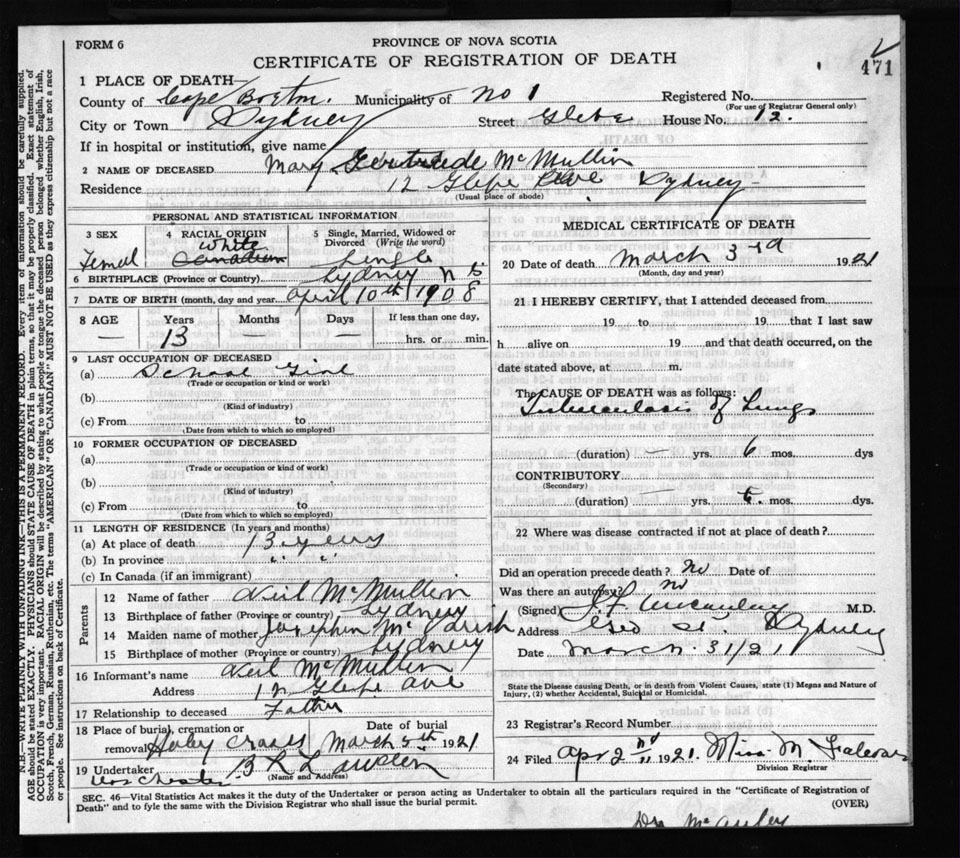 FORM 6
PROVINCE OF NOVA SCOTIA
CERTIFICATE OF REGISTRATION OF DEATH
471
1 PLACE OF DEATH—
County of Cape Breton. Municipality of No 1 Registered No.
(For use of Registrar General only)
City or Town Sydney Street Glebe House No. 12.
If in hospital or institution, give name
2 NAME OF DECEASED Mary Gertrude McMullin
Residence 12 Glebe Ave Sydney
(Usual place of abode)
PERSONAL AND STATISTICAL INFORMATION
3 SEX Femal
4 RACIAL ORIGIN white Canadian
5 Single, Married, Widowed or Divorced (Write the word) Single
6 BIRTHPLACE (Province or Country) Sydney N S
7 DATE OF BIRTH (month, day and year) April 10th 1908
8 AGE — Years 13 Months — Days — If less than one day, hrs. or min.
9 LAST OCCUPATION OF DECEASED
(a) School Girl
(Trade or occupation or kind or work)
(b)
(Kind of industry)
(c) From to
(Date from which to which so employed)
10 FORMER OCCUPATION OF DECEASED
(a)
(Trade or occupation or kind of work)
(b)
(Kind of industry)
(c) From to
(Date from which to which so employed)
11 LENGTH OF RESIDENCE (In years and months)
(a) At place of death 13 years
(b) In province " "
(c) In Canada (if an immigrant)
Parents
12 Name of father Neil McMullin
13 Birthplace of father (Province or country) Sydney
14 Maiden name of mother Josephin
15 Birthplace of mother (Province or country) Sydney
16 Informant's name Neil McMullin
Address Glebe Ave
17 Relationship to deceased Father
18 Place of burial, cremation or removal Holy Cross
Date of burial March 5th 1921
19 Undertaker
(Name and Address)
MEDICAL CERTIFICATE OF DEATH
20 Date of death March 3rd 1921
(Month, day and year)
21 I HEREBY CERTIFY, that I attended deceased from
19 to 19 that I last saw
h alive on 19 and that death occurred, on the
date stated above, at m.
The CAUSE OF DEATH was as follows:
Tuberculosis of Lungs
(duration) — yrs. 6 mos. dys
CONTRIBUTORY
(Secondary)
(duration) — yrs. 6. mos. dys.
22 Where was disease contracted if not at place of death?
Did an operation precede death? No Date of
Was there an autopsy? no
(Signed) M.D.
Address Sydney
Date March 31/21
State the Disease causing Death, or in death from Violent Causes, state (1) Megns and Nature of
Injury, (2) whether Accidental, Suicidal or Homicidal.
23 Registrar's Record Number
24 Filed Apr 2nd 1921. Miss M
Division Registrar
SEC. 46—Vital Statistics Act makes it the duty of the Undertaker or person acting as Undertaker to obtain all the particulars required in the "Certificate of Registration of
Death" and to fyle the same with the Division Registrar who shall issue the burial permit.
(OVER)
N.B.—WRITE PLAINLY WITH UNFADING INK—THIS IS A PERMANENT RECORD. Every item of information should be carefully supplied.
AGE should be stated EXACTLY. PHYSICIANS should STATE CAUSE OF DEATH in plain terms, so that it may be properly classified. Exact statement of
OCCUPATION is very important. RACIAL ORIGIN will be described by stating to what people or tongue the deceased person belonged whether English, Irish,
Scotch, French, German, Russian, Ruthenian, etc. The terms "AMERICAN" OR "CANADIAN" MUST NOT BE USED as they express citizenship but not a race
or people. See instructions on back of Certificate.